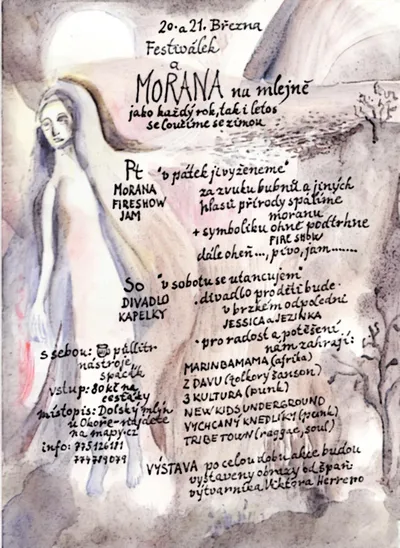 20. a 21. Března
Festiválek
a
MORANA na mlejně
jako každý rok, tak i letos
se loučíme se zimou
Pt "v pátek ji vyženeme"
MORANA
FIRESHOW
JAM
za zvuku bubnů a jiných
hlasů přírody spálíme
moranu
+ symboliku ohně podtrhne
FIRE SHOW
dále oheň..., pivo, jam.......
So "v sobotu se utancujem"
DIVADLO
KAPELKY
· divadlo pro děti bude
v brzkém odpoledni
JESSICA a JEZINKA
· pro radost a potěšení
nám zahrají:
MARINBAMAMA (afrika)
Z DAVU (folkový šanson)
3 KULTURA (punk)
NEW KIDS UNDERGROUND
VYCHCANÝ KNEDLÍKY (punk)
TRIBE TOWN (raggae, soul)
s sebou: půllitr
nástroje
spacák
vstup: 80 kč na
cesťáky
místopis: Dolský mlýn
u Okoře - najdete
na mapy.cz
info: 775126181
774784079
VÝSTAVA po celou dobu akce budou
vystaveny obrazy od špan.
výtvarníka Viktora Herrero